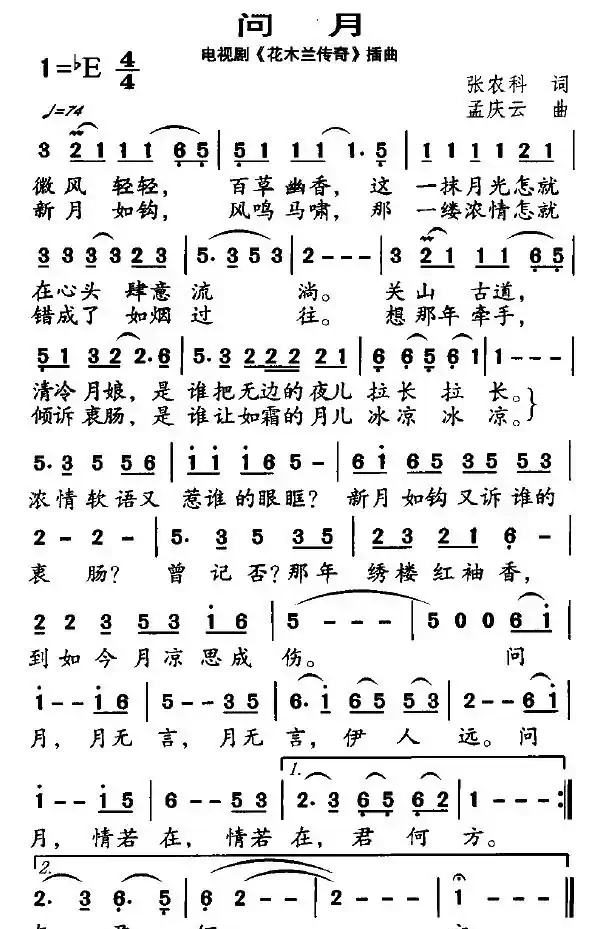 问 月
电视剧《花木兰传奇》插曲
1=♭E 4/4
张农科 词
♩=74
孟庆云 曲
3 2 1 1 1 6 5 | 5 1 1 1 1. 5 | 1 1 1 1 1 2 1 |
微风 轻轻, 百草幽香, 这 一抹月光怎就
新月 如钩, 风鸣马啸, 那 一缕浓情怎就
3 3 3 3 2 3 | 5. 3 5 3 | 2 - - - | 3 2 1 1 1 6 5 |
在心头 肆意 流 淌。 关山 古道,
错成了 如烟 过 往。 想那年牵手,
5 1 3 2 2. 6 | 5. 3 2 2 2 2 1 | 6 6 5 6 1 | 1 - - - |
清冷月娘, 是 谁把无边的夜儿 拉长 拉 长。
倾诉衷肠, 是 谁让如霜的月儿 冰凉 冰 凉。
5. 3 5 5 6 | 1 1 1 6 5 - | 6 1 6 5 3 5 5 3 |
浓情软语又 惹谁的眼眶? 新月如钩又诉谁的
2 - 2 - | 5. 3 5 3 5 | 2 3 2 1 6 - |
衷 肠? 曾记否?那年 绣楼红袖香,
2 2 3 5 3 1 6 | 5 - - - | 5 0 0 6 1 |
到如今月凉思成 伤。 问
1 - - 1 6 | 5 - - 3 5 | 6. 1 6 5 5 3 | 2 - - 6 1 |
月, 月无 言, 月无 言, 伊 人 远。问
1 - - 1 5 | 6 - - 5 3 | 1. 2. 3 6 5 6 2 | 1 - - - :|
月, 情若 在, 情若 在, 君 何 方。
2. 2. 3 6. 5 | 6 2 - - | 2 - - - | 1 - - - |